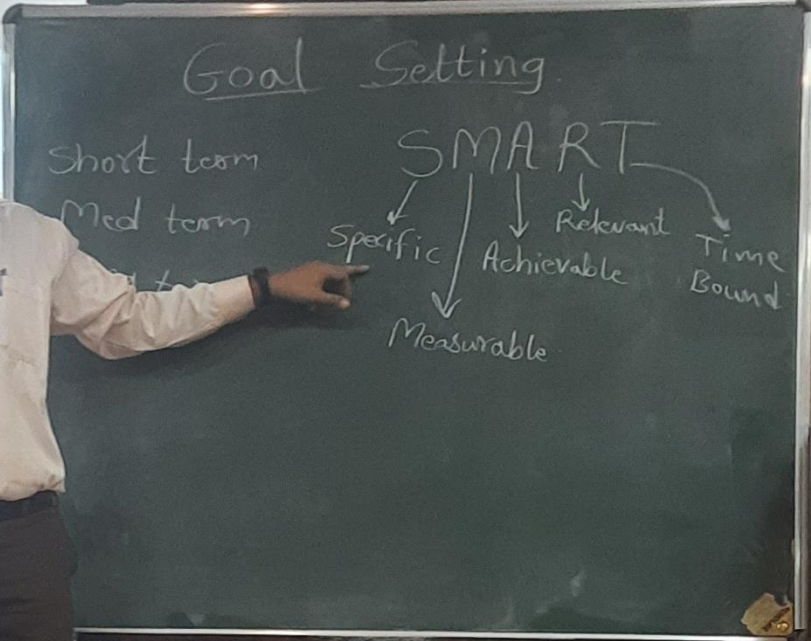 Goal Setting
Short term
Med term
SMART
Specific
Measurable
Achievable
Relevant
Time
Bound